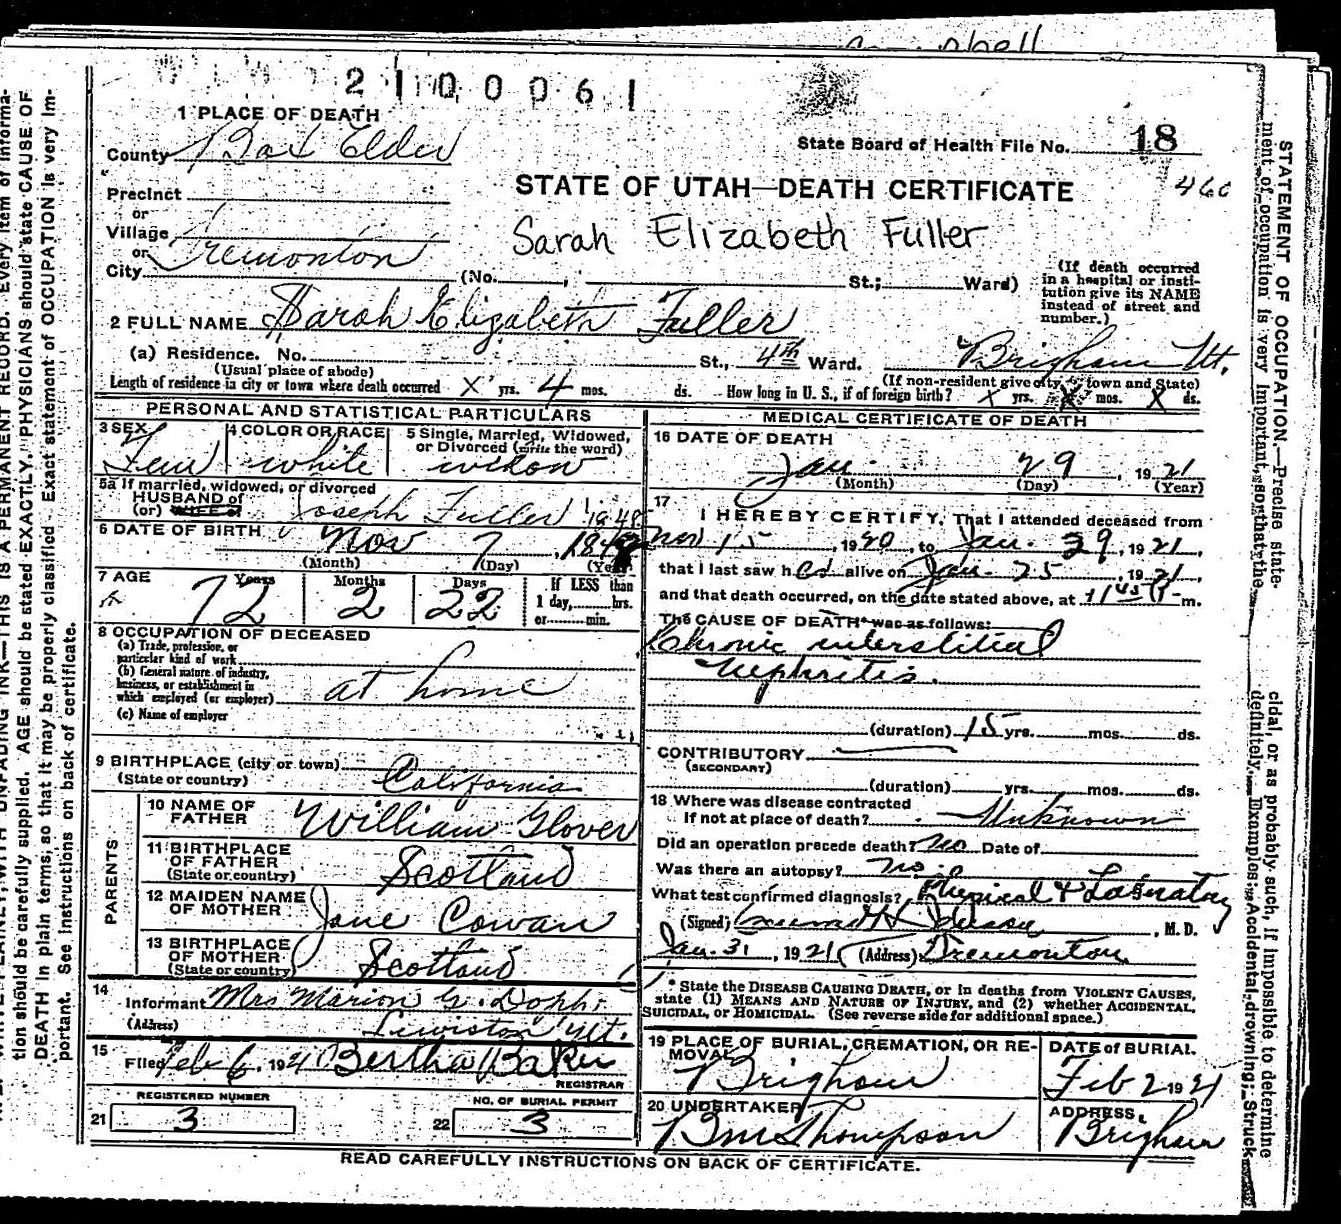 2100061
1 PLACE OF DEATH
County Box Elder
State Board of Health File No. 18
460
Precinct
STATE OF UTAH—DEATH CERTIFICATE
or
Village
Sarah Elizabeth Fuller
or
City Tremonton (No. , St.; Ward)
(If death occurred
in a hospital or insti-
tution give its NAME
instead of street and
number.)
2 FULL NAME Sarah Elizabeth Fuller
(a) Residence. No. St., 4th Ward. Brigham Ut.
(Usual place of abode) (If non-resident give city or town and State)
Length of residence in city or town where death occurred X yrs. 4 mos. ds. How long in U. S., if of foreign birth? X yrs. X mos. X ds.
PERSONAL AND STATISTICAL PARTICULARS
3 SEX 4 COLOR OR RACE 5 Single, Married, Widowed,
or Divorced (write the word)
Fem white widow
5a If married, widowed, or divorced
HUSBAND of
(or) WIFE of Joseph Fuller 1848
6 DATE OF BIRTH Nov 7, 1848
(Month) (Day) (Year)
7 AGE Years Months Days If LESS than
72 2 22 1 day, hrs.
or min.
8 OCCUPATION OF DECEASED
(a) Trade, profession, or
particular kind of work
(b) General nature of industry,
business, or establishment in
which employed (or employer) at home
(c) Name of employer
9 BIRTHPLACE (city or town)
(State or country) California
PARENTS
10 NAME OF
FATHER William Glover
11 BIRTHPLACE
OF FATHER
(State or country) Scotland
12 MAIDEN NAME
OF MOTHER Jane Cowan
13 BIRTHPLACE
OF MOTHER
(State or country) Scotland
14
Informant Mrs Marion G. Doph
(Address) Lewiston Ut.
15
Filed Feb 6, 1921 Bertha Baker
REGISTRAR
REGISTERED NUMBER NO. OF BURIAL PERMIT
21 3 22 3
MEDICAL CERTIFICATE OF DEATH
16 DATE OF DEATH
Jan. 29, 1921
(Month) (Day) (Year)
17
I HEREBY CERTIFY, That I attended deceased from
Nov 15, 1920, to Jan. 29, 1921,
that I last saw her alive on Jan. 25, 1921,
and that death occurred, on the date stated above, at 11 45 P. m.
The CAUSE OF DEATH* was as follows:
Chronic interstitial
Nephritis.
(duration) 15 yrs. mos. ds.
CONTRIBUTORY
(SECONDARY)
(duration) yrs. mos. ds.
18 Where was disease contracted
If not at place of death? Unknown
Did an operation precede death? No Date of
Was there an autopsy? No.
What test confirmed diagnosis? Physical & Laboratory
(Signed) , M. D.
Jan. 31, 1921 (Address) Tremonton
* State the DISEASE CAUSING DEATH, or in deaths from VIOLENT CAUSES,
state (1) MEANS AND NATURE OF INJURY, and (2) whether ACCIDENTAL,
SUICIDAL, or HOMICIDAL. (See reverse side for additional space.)
19 PLACE OF BURIAL, CREMATION, OR RE-
MOVAL Brigham
DATE of BURIAL
Feb 2 1921
20 UNDERTAKER
B M Thompson
ADDRESS
Brigham
READ CAREFULLY INSTRUCTIONS ON BACK OF CERTIFICATE.
THIS IS A PERMANENT RECORD. Every item of informa-
tion should be carefully supplied. AGE should be stated EXACTLY. PHYSICIANS should state CAUSE OF
DEATH in plain terms, so that it may be properly classified. Exact statement of OCCUPATION is very im-
portant. See instructions on back of certificate.
STATEMENT OF OCCUPATION.—Precise state-
ment of occupation is very important, so that the
cidal, or as probably such, if impossible to determine
definitely. Examples: Accidental drowning; Struck